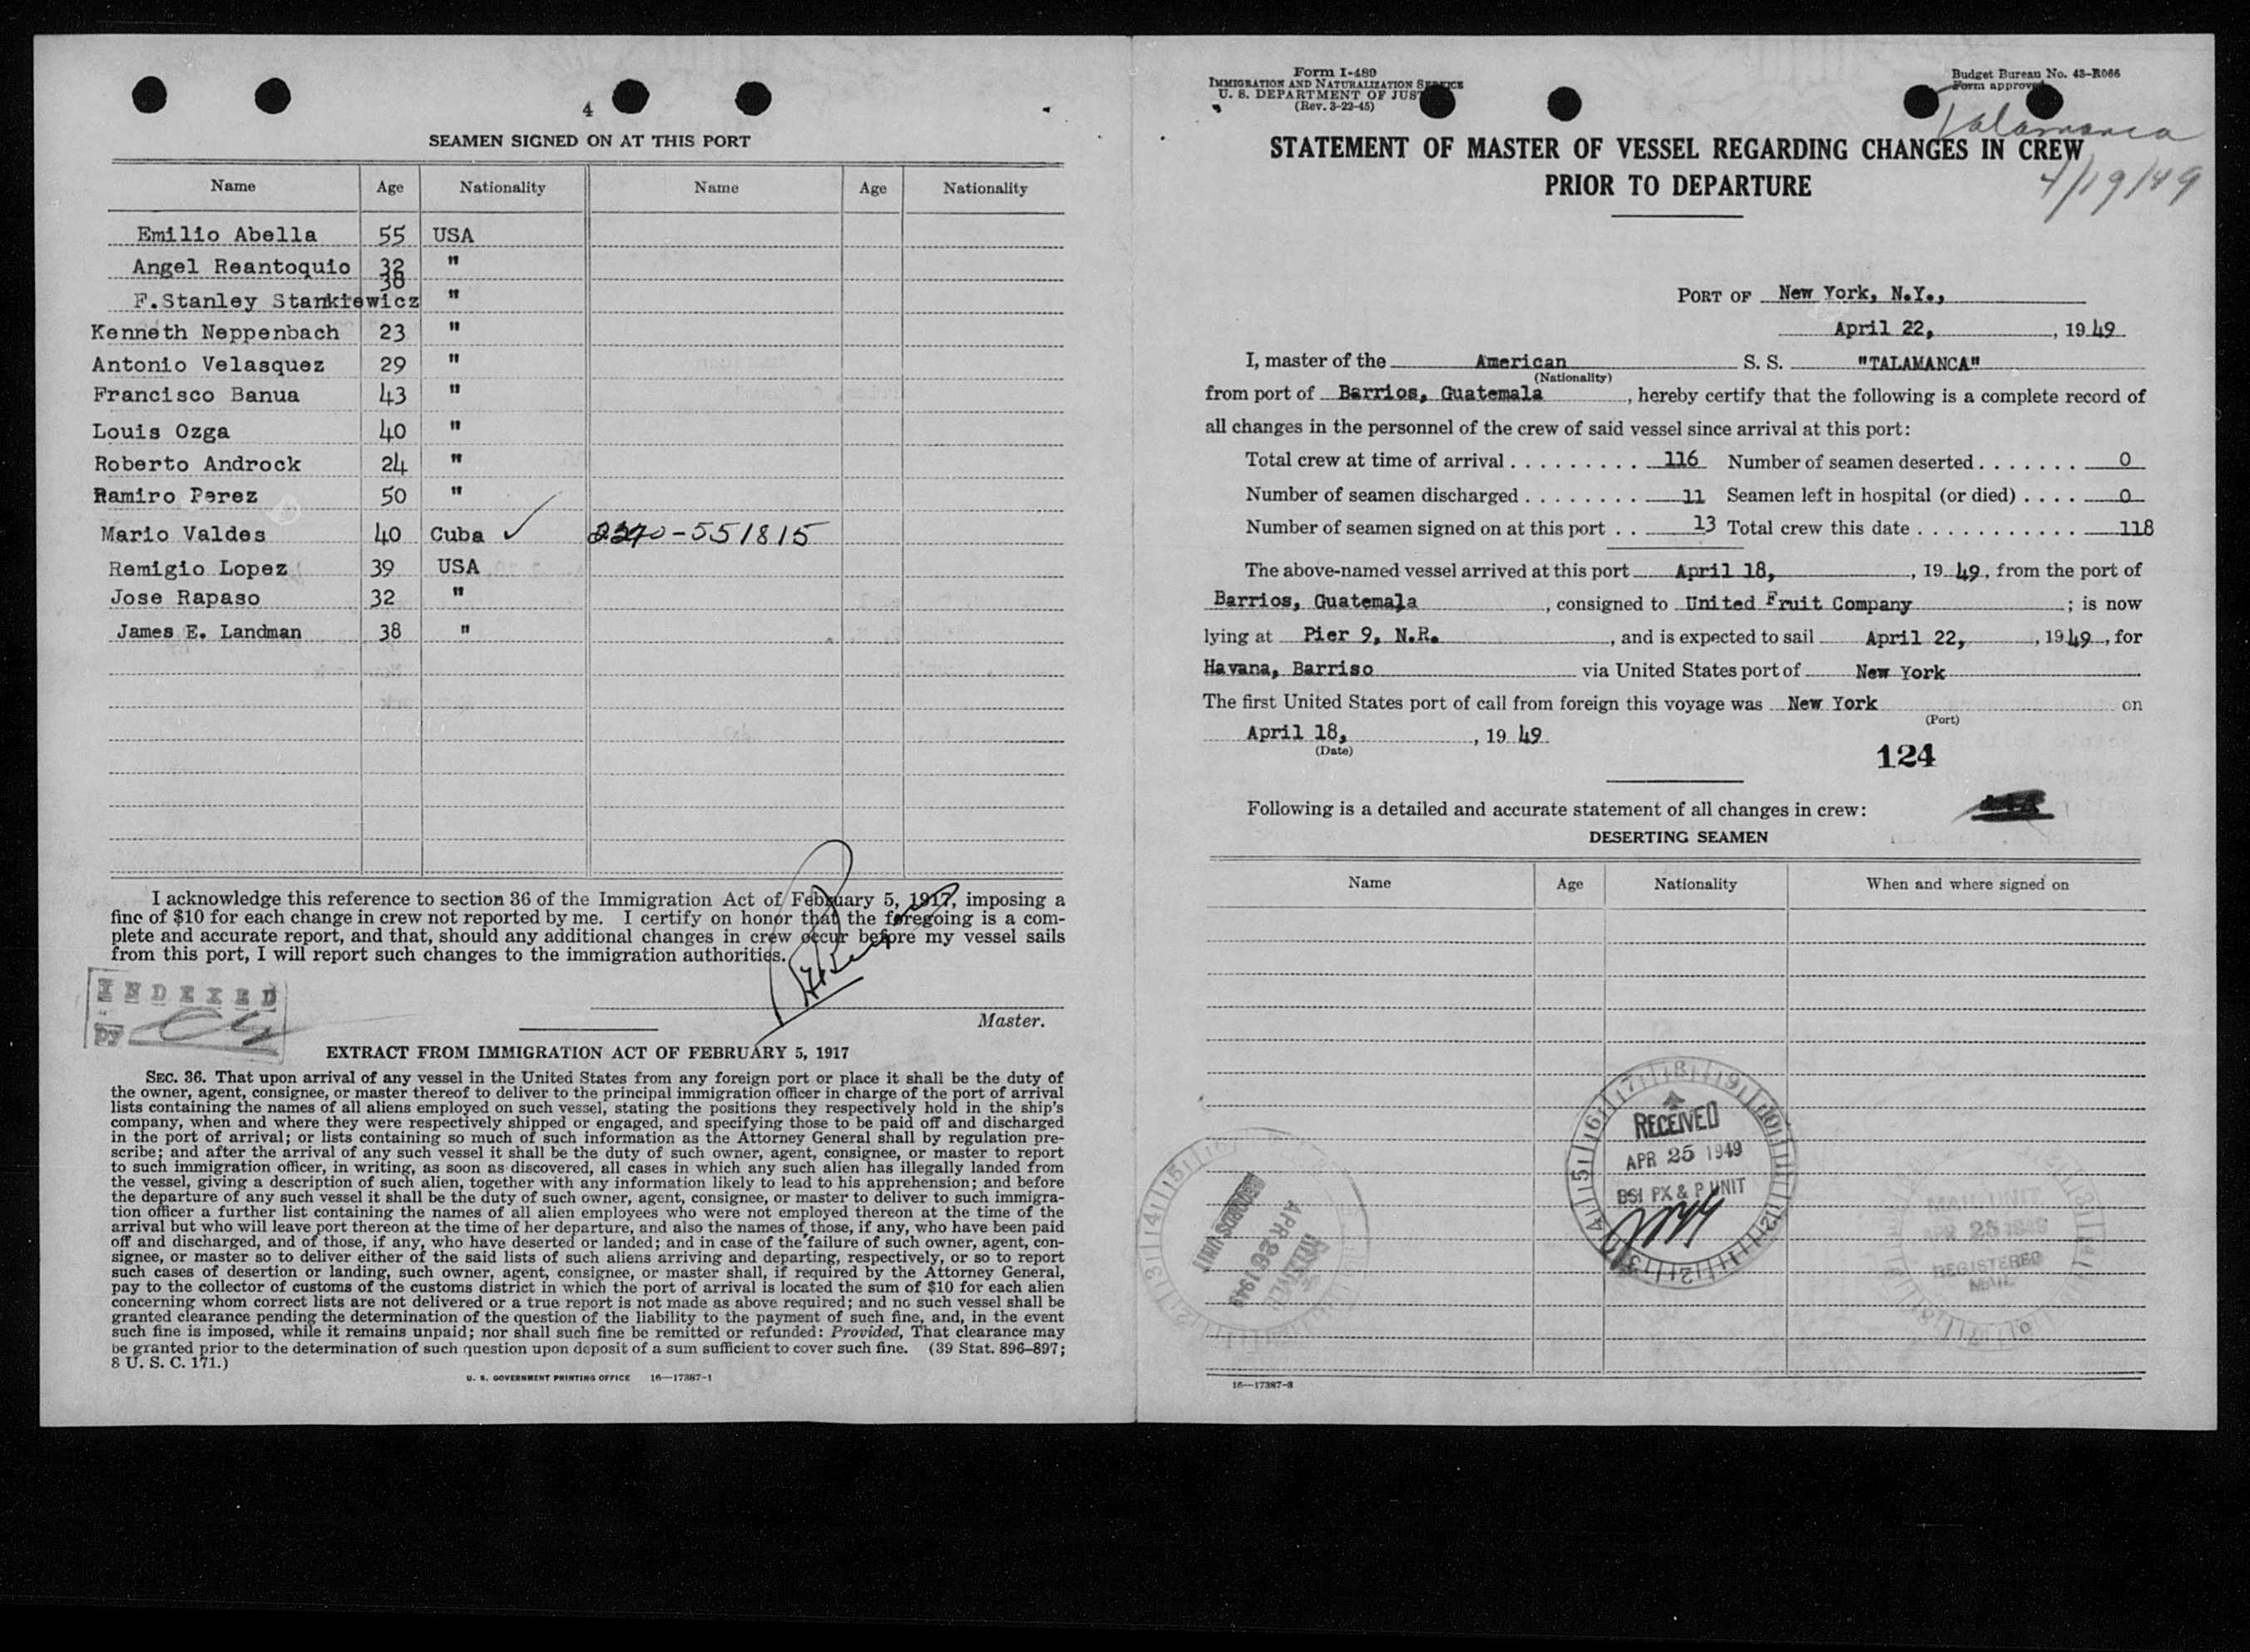 4
SEAMEN SIGNED ON AT THIS PORT
Name Age Nationality Name Age Nationality
Emilio Abella 55 USA
Angel Reantoquio 32 "
38
F.Stanley Stankiewicz "
Kenneth Neppenbach 23 "
Antonio Velasquez 29 "
Francisco Banua 43 "
Louis Ozga 40 "
Roberto Androck 24 "
Ramiro Perez 50 "
Mario Valdes 40 Cuba ✓ -551815
Remigio Lopez 39 USA
Jose Rapaso 32 "
James E. Landman 38 "
I acknowledge this reference to section 36 of the Immigration Act of February 5, 1917, imposing a
fine of $10 for each change in crew not reported by me. I certify on honor that the foregoing is a com-
plete and accurate report, and that, should any additional changes in crew occur before my vessel sails
from this port, I will report such changes to the immigration authorities.
INDEXED
by
Master.
EXTRACT FROM IMMIGRATION ACT OF FEBRUARY 5, 1917
SEC. 36. That upon arrival of any vessel in the United States from any foreign port or place it shall be the duty of
the owner, agent, consignee, or master thereof to deliver to the principal immigration officer in charge of the port of arrival
lists containing the names of all aliens employed on such vessel, stating the positions they respectively hold in the ship's
company, when and where they were respectively shipped or engaged, and specifying those to be paid off and discharged
in the port of arrival; or lists containing so much of such information as the Attorney General shall by regulation pre-
scribe; and after the arrival of any such vessel it shall be the duty of such owner, agent, consignee, or master to report
to such immigration officer, in writing, as soon as discovered, all cases in which any such alien has illegally landed from
the vessel, giving a description of such alien, together with any information likely to lead to his apprehension; and before
the departure of any such vessel it shall be the duty of such owner, agent, consignee, or master to deliver to such immigra-
tion officer a further list containing the names of all alien employees who were not employed thereon at the time of the
arrival but who will leave port thereon at the time of her departure, and also the names of those, if any, who have been paid
off and discharged, and of those, if any, who have deserted or landed; and in case of the failure of such owner, agent, con-
signee, or master so to deliver either of the said lists of such aliens arriving and departing, respectively, or so to report
such cases of desertion or landing, such owner, agent, consignee, or master shall, if required by the Attorney General,
pay to the collector of customs of the customs district in which the port of arrival is located the sum of $10 for each alien
concerning whom correct lists are not delivered or a true report is not made as above required; and no such vessel shall be
granted clearance pending the determination of the question of the liability to the payment of such fine, and, in the event
such fine is imposed, while it remains unpaid; nor shall such fine be remitted or refunded: Provided, That clearance may
be granted prior to the determination of such question upon deposit of a sum sufficient to cover such fine. (39 Stat. 896–897;
8 U. S. C. 171.)
U. S. GOVERNMENT PRINTING OFFICE 16—17387-1
Form I-489
IMMIGRATION AND NATURALIZATION SERVICE
U. S. DEPARTMENT OF JUST
(Rev. 3-22-45)
Budget Bureau No. 43-R066
Form approved
Talamanca
4/19/49
STATEMENT OF MASTER OF VESSEL REGARDING CHANGES IN CREW
PRIOR TO DEPARTURE
PORT OF New York, N.Y.,
April 22, , 1949
I, master of the American S. S. "TALAMANCA"
(Nationality)
from port of Barrios, Guatemala , hereby certify that the following is a complete record of
all changes in the personnel of the crew of said vessel since arrival at this port:
Total crew at time of arrival . . . . . . . . . . 116 Number of seamen deserted . . . . . . . 0
Number of seamen discharged . . . . . . . . 11 Seamen left in hospital (or died) . . . . 0
Number of seamen signed on at this port . . 13 Total crew this date . . . . . . . . . . . 118
The above-named vessel arrived at this port April 18, , 1949, from the port of
Barrios, Guatemala , consigned to United Fruit Company ; is now
lying at Pier 9, N.R. , and is expected to sail April 22, , 1949, for
Havana, Barriso via United States port of New York
The first United States port of call from foreign this voyage was New York on
(Port)
April 18, , 1949
(Date)
124
Following is a detailed and accurate statement of all changes in crew:
DESERTING SEAMEN
Name Age Nationality When and where signed on
RECEIVED
APR 25 1949
BSI PX & P UNIT
RECORDS UNIT
APR 26 1949
RECEIVED
MAIL UNIT
APR 25 1949
REGISTERED
MAIL
16—17387-3